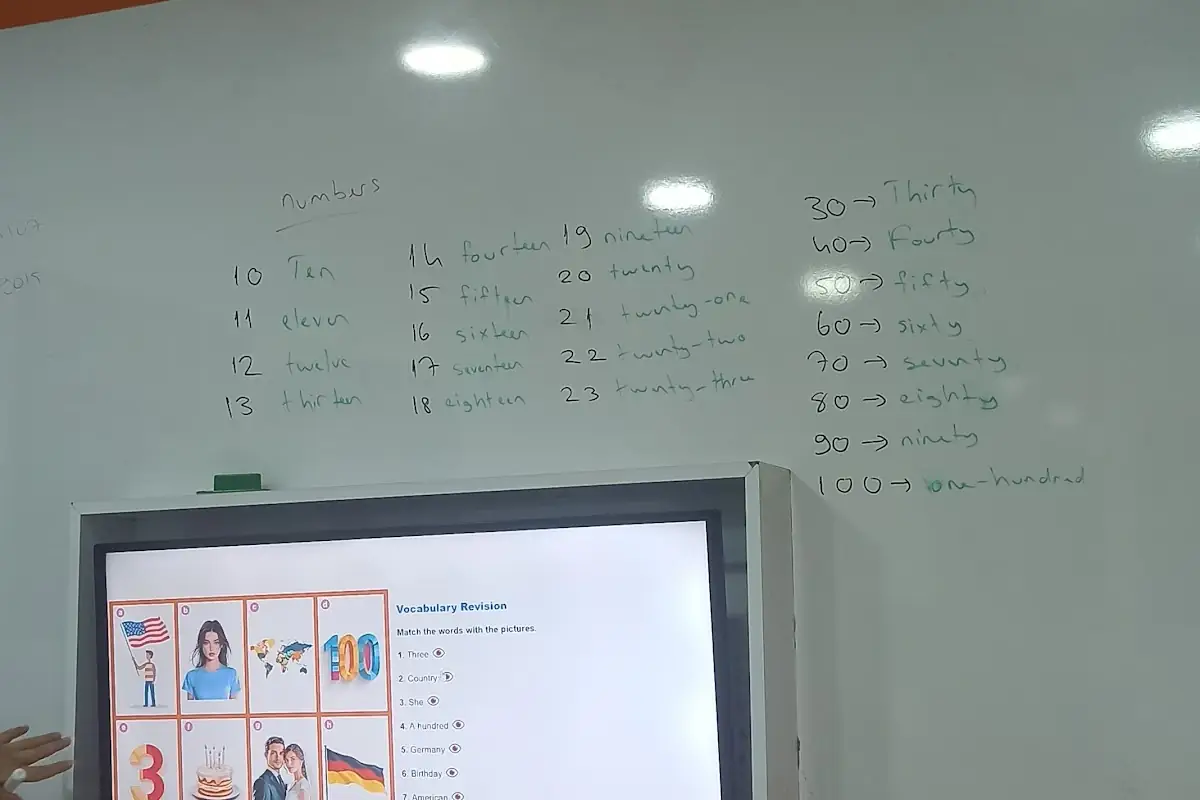 numbers
10 Ten
11 eleven
12 twelve
13 thirteen
14 fourteen
15 fifteen
16 sixteen
17 seventeen
18 eighteen
19 nineteen
20 twenty
21 twenty-one
22 twenty-two
23 twenty-three
30→ Thirty
40→ Fourty
50→ fifty
60→ sixty
70→ seventy
80→ eighty
90→ ninety
100→ one-hundred
a
b
c
d
100
e
f
g
h
3
Vocabulary Revision
Match the words with the pictures.
1. Three
2. Country
3. She
4. A hundred
5. Germany
6. Birthday
7. American